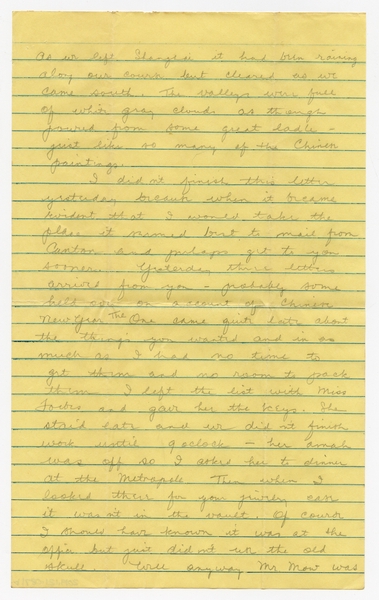 As we left Shanghai it had been raining
along our course but cleared as we
came south. The valleys were full
of white gray clouds as though
poured from some great ladle –
just like so many of the Chinese
paintings.
I didn't finish this letter
yesterday because when it became
evident that I would take the
plane it seemed best to mail from
Canton and perhaps get to you
sooner. Yesterday three letters
arrived from you – probably some
held over on account of Chinese
New Year. The One came quite late about
the things you wanted and in as
much as I had no time to
get them and no room to pack
them I left the list with Miss
Forbes and gave her the keys. She
staid late and we didn't finish
work until 9 oclock – her amah
was off so I asked her to dinner
at the Metropole. Then when I
looked there for your jewelry case
it wasn't in the vault. Of course
I should have known it was at the
office but just didn't use the old
skull. Well anyway Mr Mow was